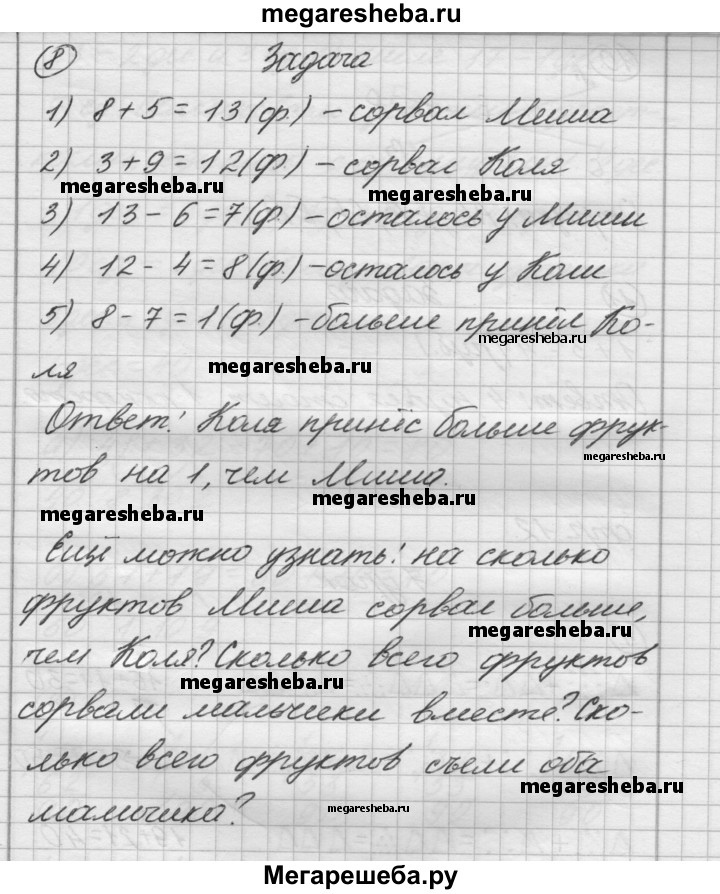 megaresheba.ru
8 Задача
1) 8 + 5 = 13 (ф.) – сорвал Миша
2) 3 + 9 = 12 (ф.) – сорвал Коля
megaresheba.ru megaresheba.ru
3) 13 - 6 = 7 (ф.) – осталось у Миши
4) 12 - 4 = 8 (ф.) – осталось у Коли
5) 8 - 7 = 1 (ф.) – больше принёс Ко-
megaresheba.ru
ля megaresheba.ru
Ответ: Коля принёс больше фрук-
megaresheba.ru
тов на 1, чем Миша.
megaresheba.ru
megaresheba.ru
Ещё можно узнать: на сколько
фруктов Миша сорвал больше,
megaresheba.ru
чем Коля? Сколько всего фруктов
megaresheba.ru
сорвали мальчики вместе? Ско-
лько всего фруктов съели оба
megaresheba.ru
мальчика? megaresheba.ru
Мегарешеба.ру